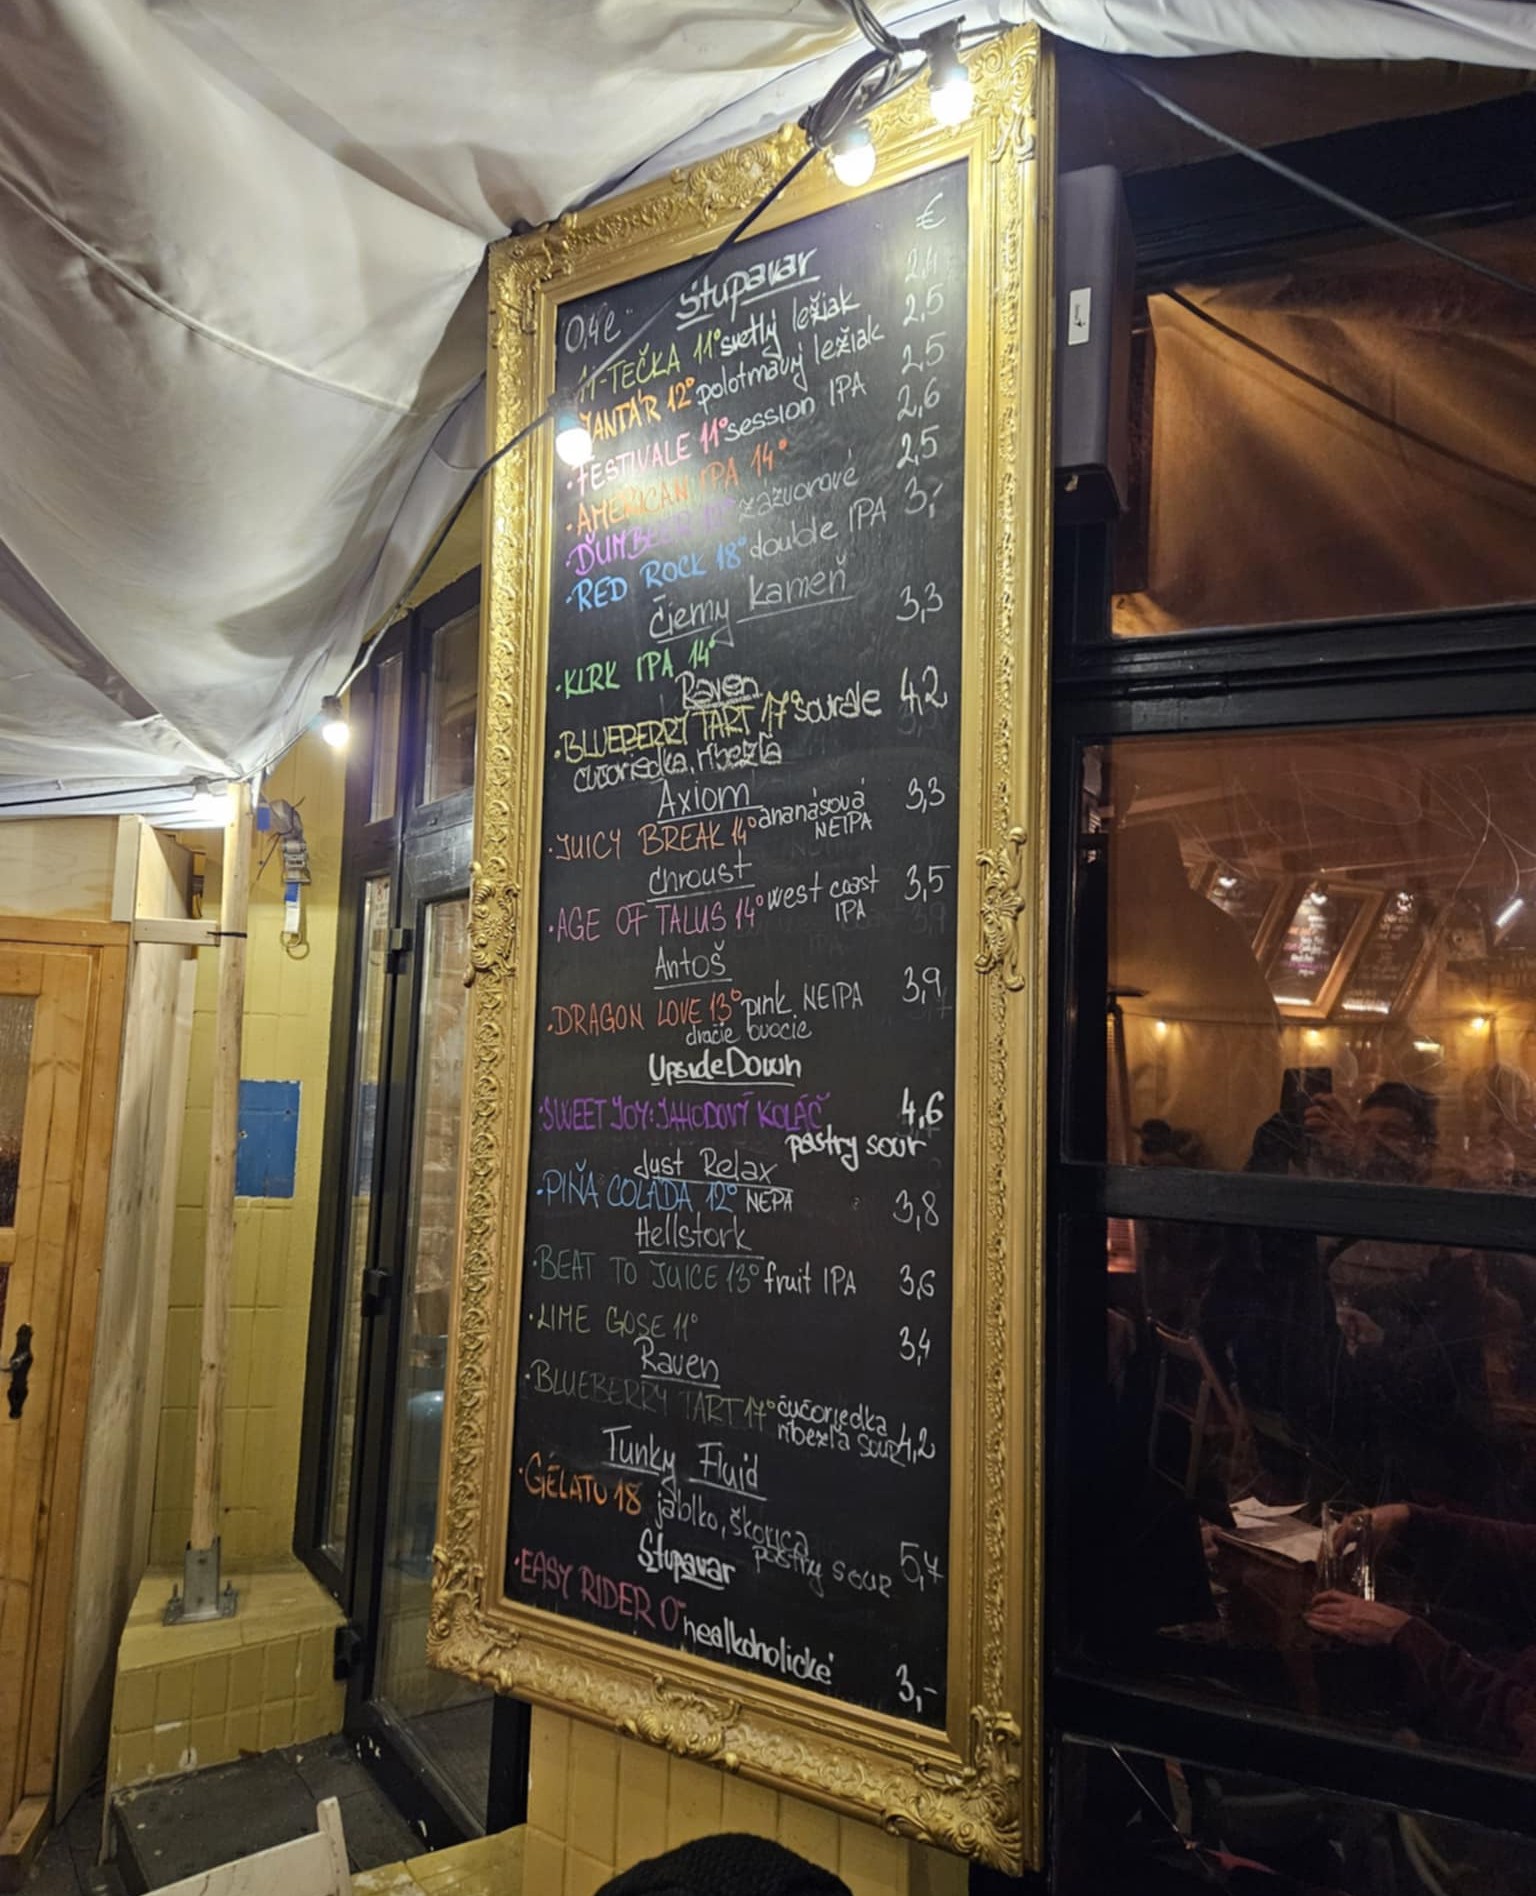 €
0,4ℓ Stupavar
11-TEČKA 11° svetlý ležiak 2,4
JANTÁR 12° polotmavý ležiak 2,5
·FESTIVALE 11° session IPA 2,5
·AMERICAN IPA 14° 2,6
·ĎUMBEER zázvorové 2,5
·RED ROCK 18° double IPA 3,-
Čierny kameň
·KLRK IPA 14° 3,3
Raven
·BLUEBERRY TART 17° sour ale 4,2
čučoriedka, ríbezľa
Axiom
·JUICY BREAK 14° ananásová 3,3
NEIPA
Chroust
·AGE OF TALUS 14° west coast 3,5
IPA
Antoš
·DRAGON LOVE 13° pink NEIPA 3,9
dračie ovocie
UpsideDown
·SWEET JOY: JAHODOVÝ KOLÁČ 4,6
pastry sour
Just Relax
·PIŇA COLADA 12° NEPA 3,8
Hellstork
·BEAT TO JUICE 13° fruit IPA 3,6
·LIME GOSE 11° 3,4
Raven
·BLUEBERRY TART 17° čučoriedka
ríbezľa sour 4,2
Funky Fluid
·GELATO 18 jablko, škorica
pastry sour 5,4
Stupavar
·EASY RIDER 0° nealkoholické 3,-